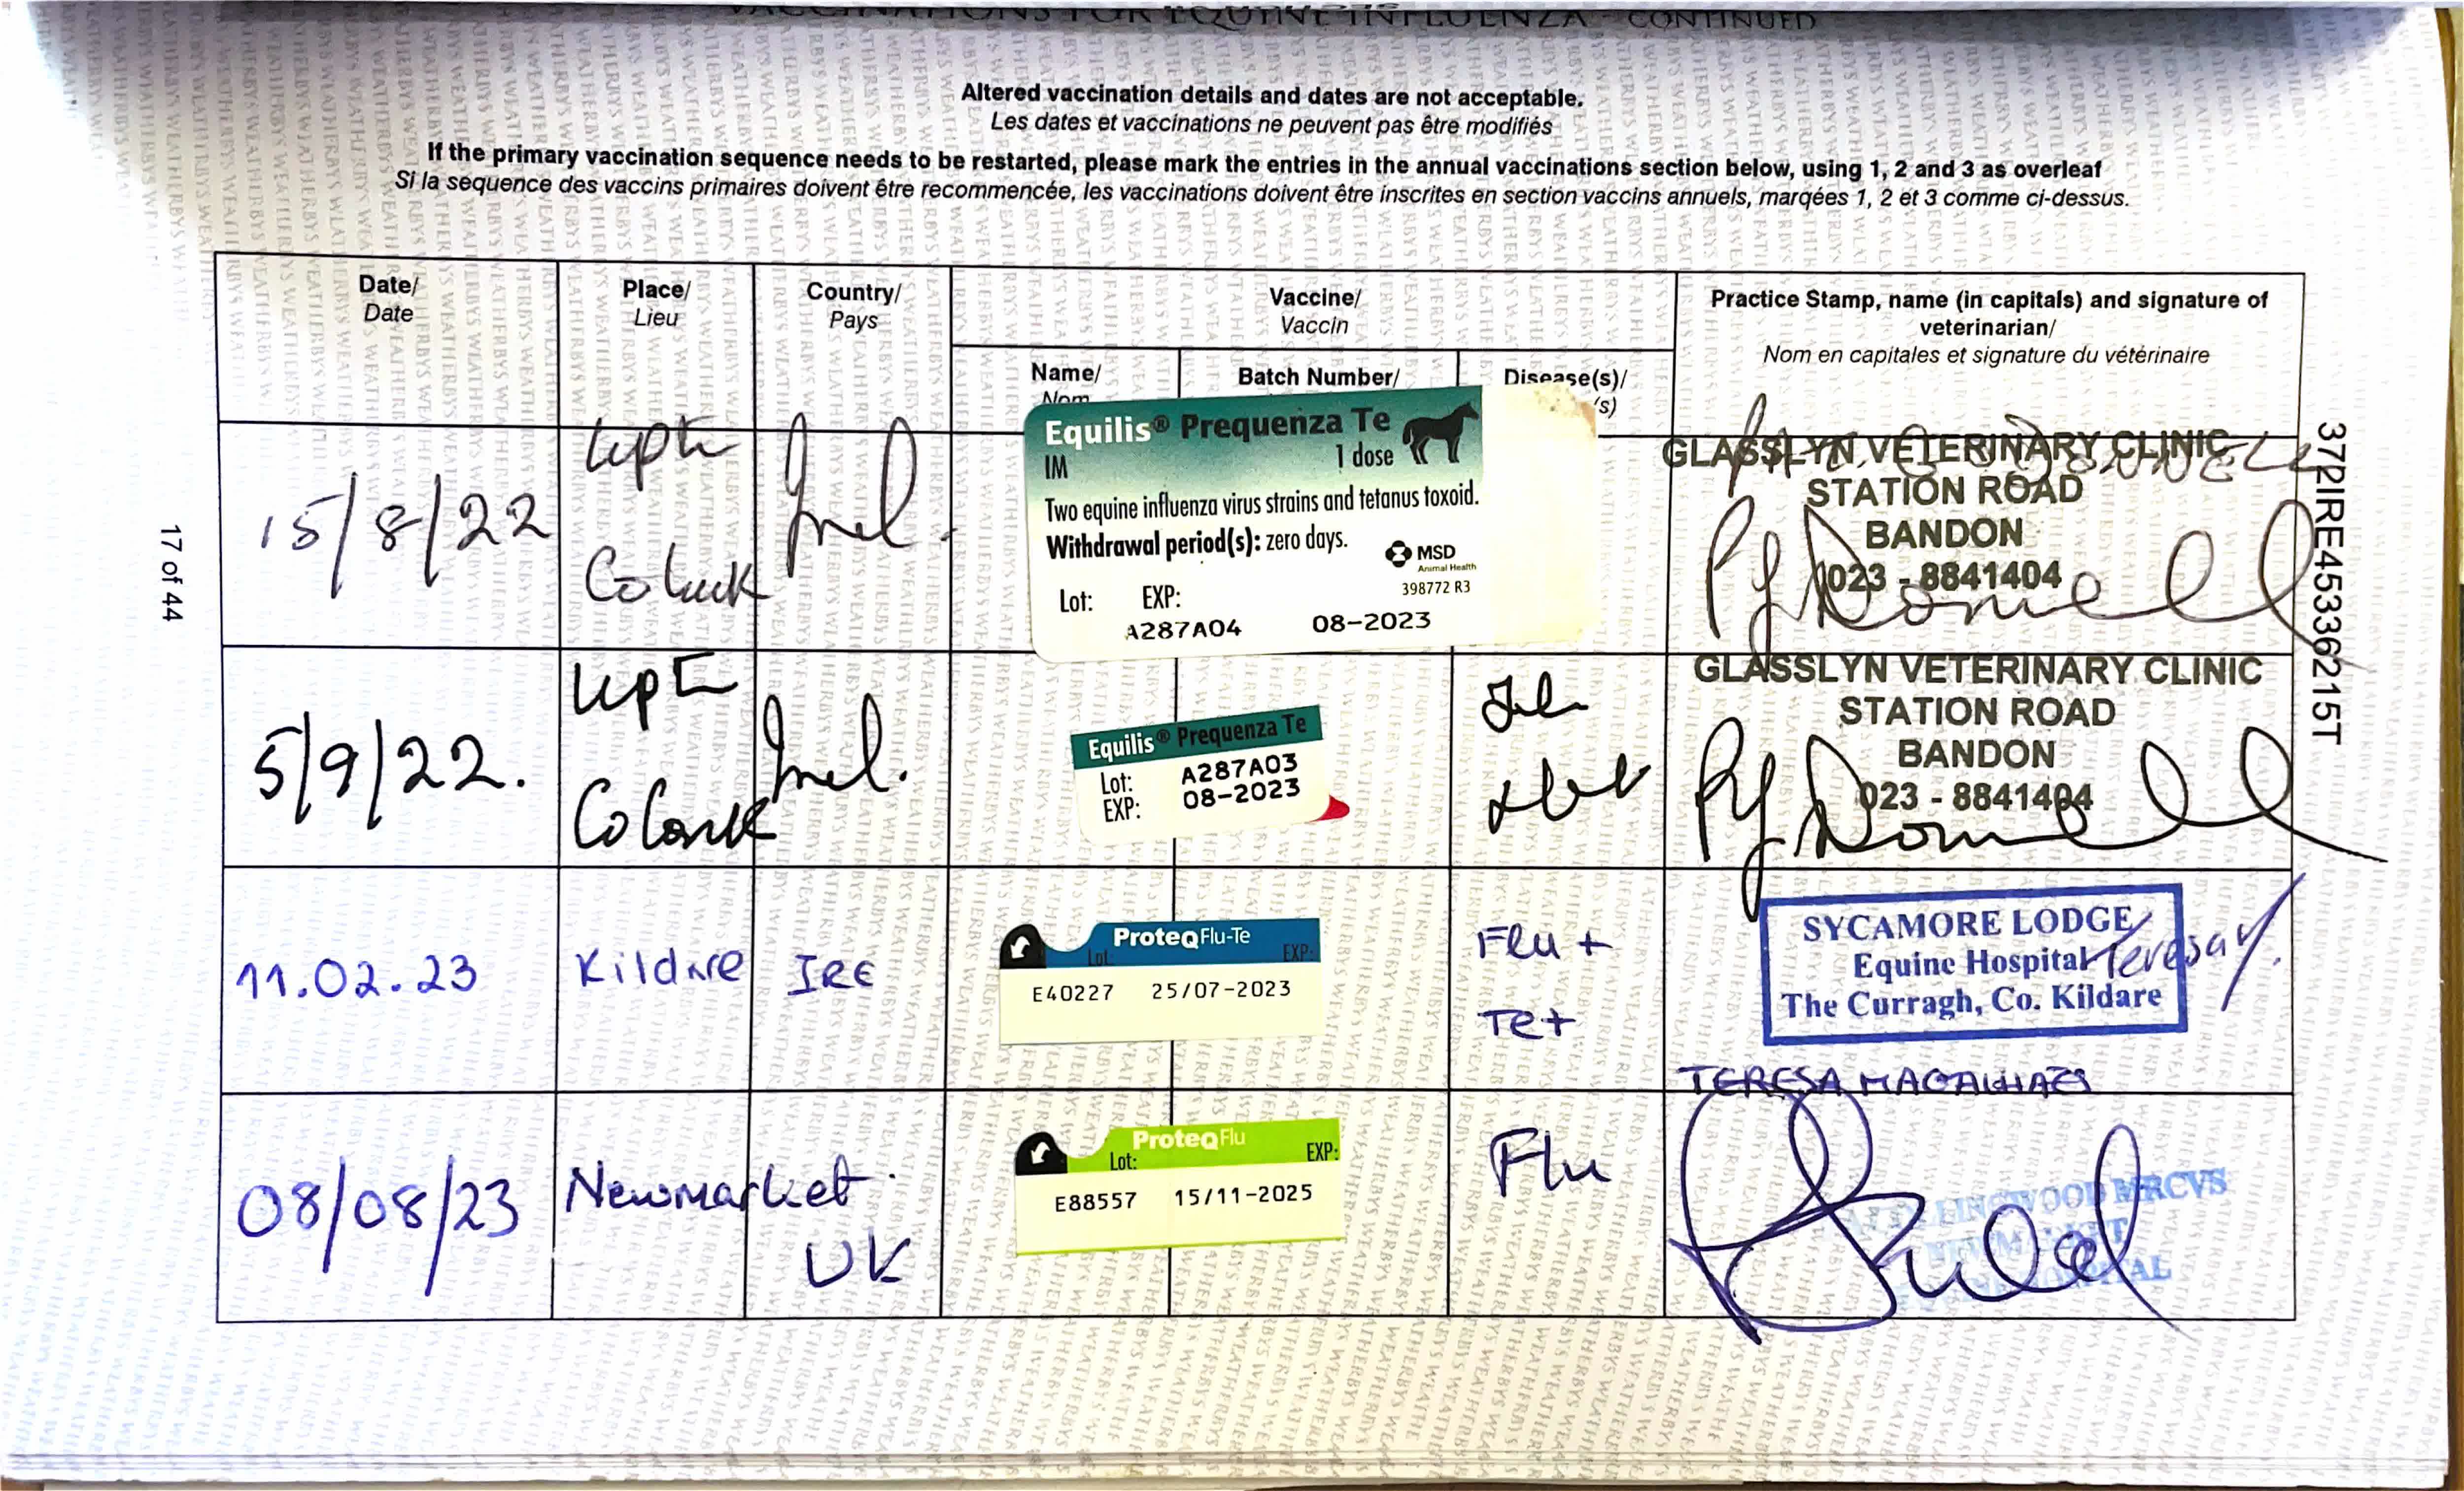 VACCINATIONS FOR EQUINE INFLUENZA - CONTINUED
Altered vaccination details and dates are not acceptable.
Les dates et vaccinations ne peuvent pas être modifiés
If the primary vaccination sequence needs to be restarted, please mark the entries in the annual vaccinations section below, using 1, 2 and 3 as overleaf
Si la sequence des vaccins primaires doivent être recommencée, les vaccinations doivent être inscrites en section vaccins annuels, marqées 1, 2 et 3 comme ci-dessus.
Date/
Date
Place/
Lieu
Country/
Pays
Vaccine/
Vaccin
Name/
Nom
Batch Number/
Disease(s)/
(s)
Practice Stamp, name (in capitals) and signature of
veterinarian/
Nom en capitales et signature du vétérinaire
15/8/22
Co Cork
Irel.
Equilis® Prequenza Te
IM
1 dose
Two equine influenza virus strains and tetanus toxoid.
Withdrawal period(s): zero days.
MSD
Animal Health
398772 R3
Lot: EXP:
A287A04 08-2023
GLASSLYN VETERINARY CLINIC
STATION ROAD
BANDON
023 - 8841404
5/9/22.
Co Cork
Irel.
Equilis® Prequenza Te
Lot: A287A03
EXP: 08-2023
GLASSLYN VETERINARY CLINIC
STATION ROAD
BANDON
023 - 8841404
11.02.23
Kildare
IRE
ProteqFlu-Te
Lot: EXP:
E40227 25/07-2023
Flu +
Te+
SYCAMORE LODGE
Equine Hospital
The Curragh, Co. Kildare
TERESA MAGALHAES
08/08/23
Newmarket
UK
ProteqFlu
Lot: EXP:
E88557 15/11-2025
Flu
MRCVS
17 of 44
372IRE45336215T